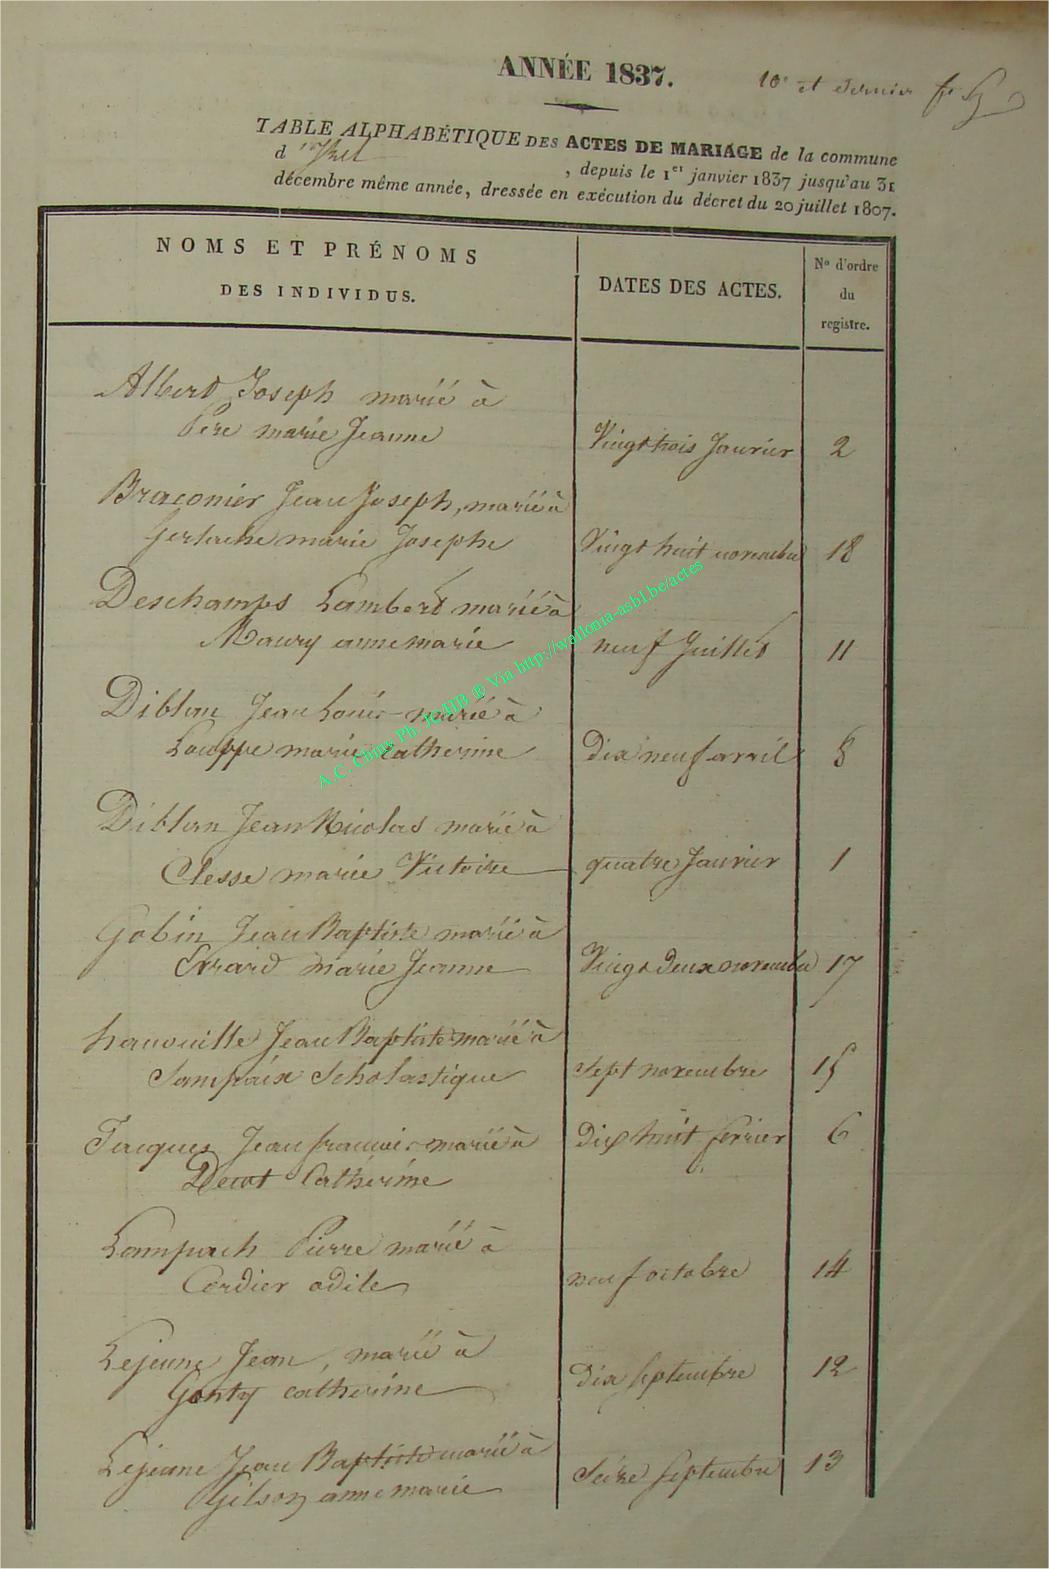 ANNÉE 1837.
10e et dernier
TABLE ALPHABÉTIQUE DES ACTES DE MARIAGE de la commune
d'Izel , depuis le 1er janvier 1837 jusqu'au 31
décembre même année, dressée en exécution du décret du 20 juillet 1807.
NOMS ET PRÉNOMS
DES INDIVIDUS.
DATES DES ACTES.
No d'ordre
du
registre.
Albert Joseph marié à
Pere marie Jeanne Vingt trois Janvier 2
Braconier Jean Joseph, marié à
Gerlache marie Josephe Vingt huit novembre 18
Deschamps Lambert marié à
Maury anne marie neuf Juillet 11
Diblan Jean Louis marié à
Louppe marie catherine dix neuf avril 8
Diblan Jean Nicolas marié à
Clesse marie Victoire quatre Janvier 1
Gobin Jean Baptiste marié à
Evrard marie Jeanne Vingt deux novembre 17
Jean Baptiste marié à
Sampaix Scholastique sept novembre 15
Jacques Jean francois marié à dix huit fevrier 6
Decot Catherine
Lampach Pierre marié à
Cordier odile neuf octobre 14
Lejeune Jean, marié à
Gonty catherine dix septembre 12
Lejeune Jean Baptiste marié à
Gilson anne marie Seize septembre 13
A.C. Chiny Ph. Jc.HB ® Via http://wallonia-asbl.be/actes